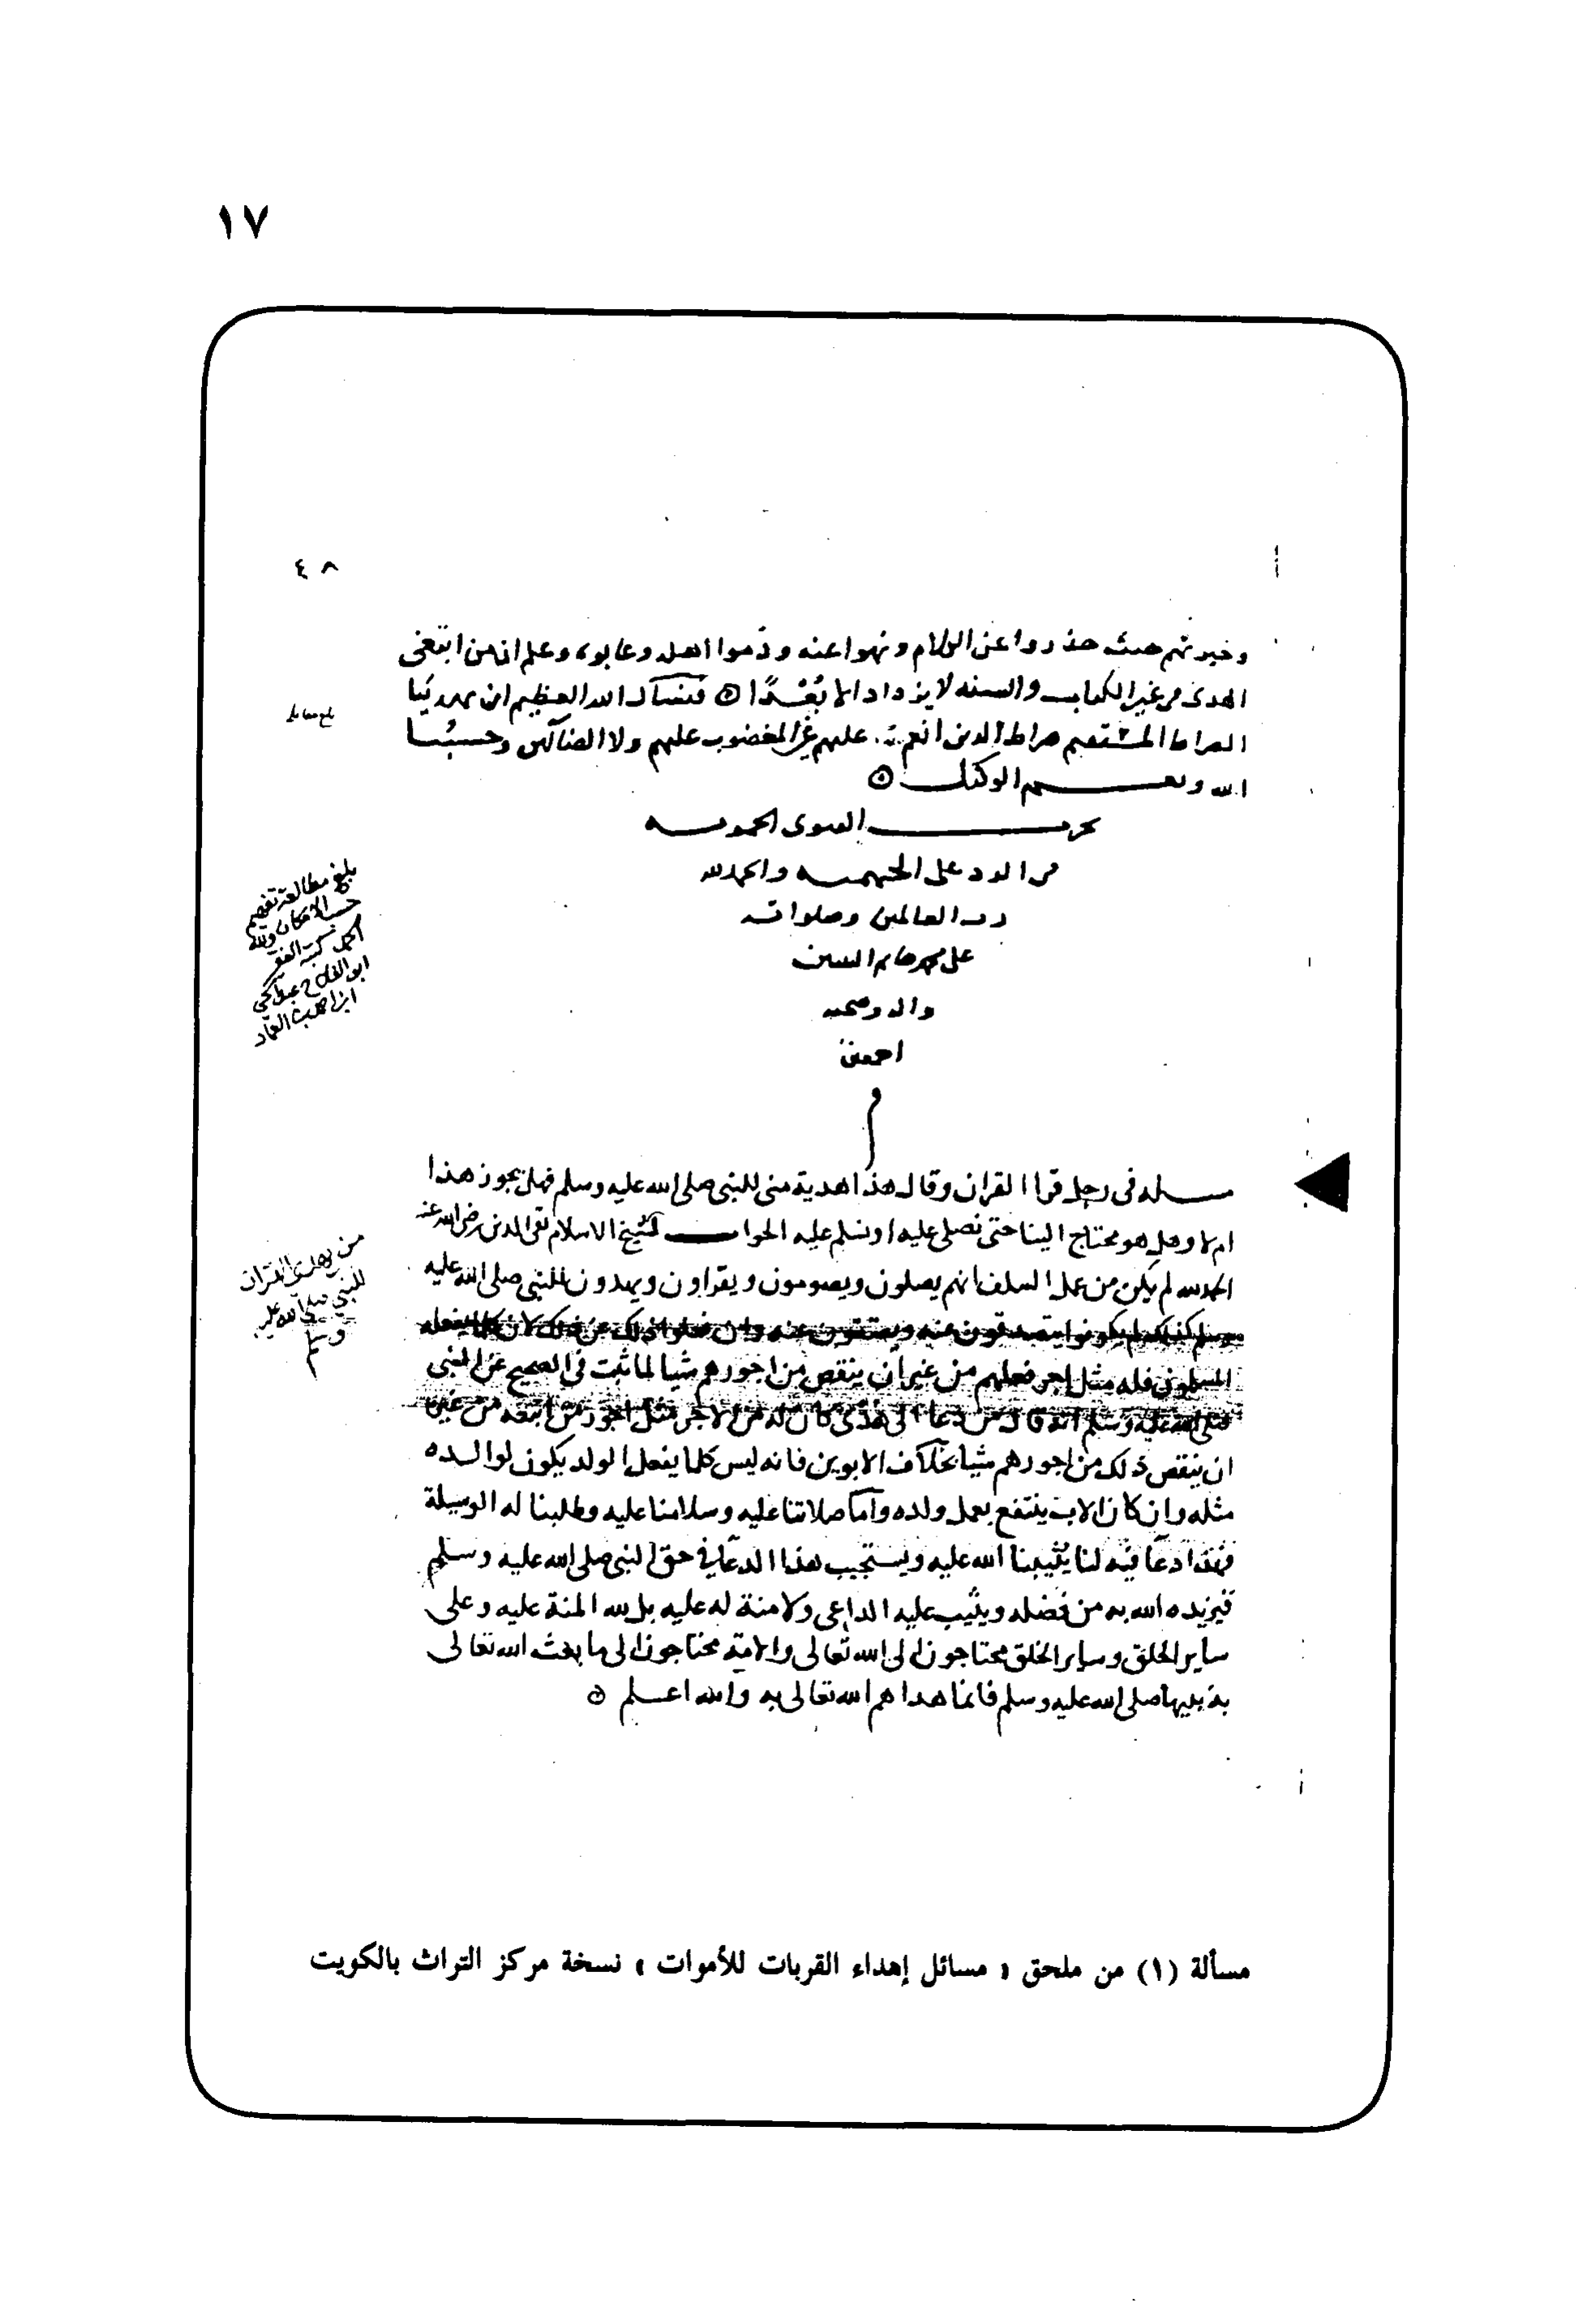 ١٧
٤٨
وخبرتهم حيث حذروا عن الكلام ونهوا عنه وذموا اهله وعابوه وعلم ان من ابتغى
الهدى من غير الكتاب والسنه لا يزداد الا بُعْدًا فنسأل الله العظيم ان يهدينا
الصراط المستقيم صراط الدين انعم عليهم غير المغضوب عليهم ولا الضالين وحسبنا
الله ونعم الوكيل
الفتوى الحمويه
من الرد على الجهميه والحمد لله
رب العالمين وصلواته
على محمد خاتم النبيين
واله وصحبه
اجمعين
بلغ مقابله
بلغ مطالعة تفهم
حسب الامكان ولله
الحمد كتبه الفقير
ابو الفلاح عبد الحي
ابن العماد
مسله في رجل قرا القران وقال هذا هدية مني للنبي صلى الله عليه وسلم فهل يجوز هذا
ام لا وهل هو محتاج الينا حتى نصلي عليه او نسلم عليه الجواب لشيخ الاسلام تقي الدين رضي الله عنه
الحمد لله لم يكن من عمل السلف انهم يصلون ويصومون ويقراون ويهدون للنبي صلى الله عليه
وسلم كذلك لم يكونوا يتصدقون عنه ويعتقون عنه لان كلما يفعله
المسلمون فله مثل اجر فعلهم من غير ان ينقص من اجورهم شيا لما ثبت في الصحيح عن النبي
صلى الله عليه وسلم انه قال من دعا الى هدى كان له من الاجر مثل اجور من اتبعه من غير
ان ينقص ذلك من اجورهم شيا بخلاف الابوين فانه ليس كلما يفعل الولد يكون لوالده
مثله وان كان الاب ينتفع بعمل ولده واما صلاتنا عليه وسلامنا عليه وطلبنا له الوسيلة
فهذا دعا فيه لنا يثيبنا الله عليه ويستجيب هذا الدعا في حق النبي صلى الله عليه وسلم
فيزيده الله به من فضله ويثيب عليه الداعي ولا منة له عليه بل لله المنة عليه وعلى
ساير الخلق وساير الخلق محتاجون الى الله تعالى والامة محتاجون الى ما بعث الله تعالى
به نبيها صلى الله عليه وسلم فانما هداهم الله تعالى به والله اعلم
من يهدي القران
للنبي صلى الله عليه
وسلم
مسألة (١) من ملحق « مسائل إهداء القربات للأموات » نسخة مركز التراث بالكويت